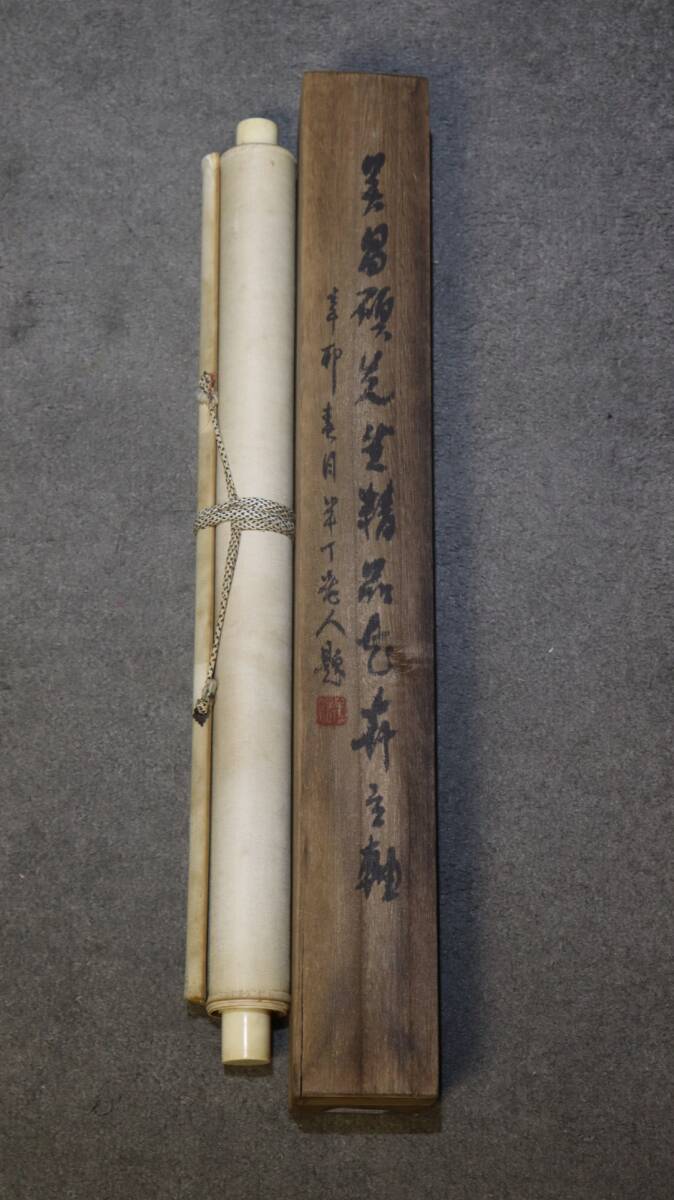 吴昌硕先生精品花卉立轴
辛卯春月半丁老人题